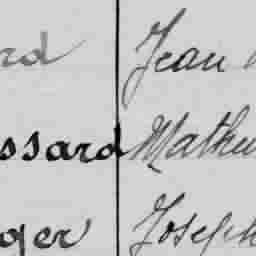 rd Jean
ssard Mathu
ger Joseph